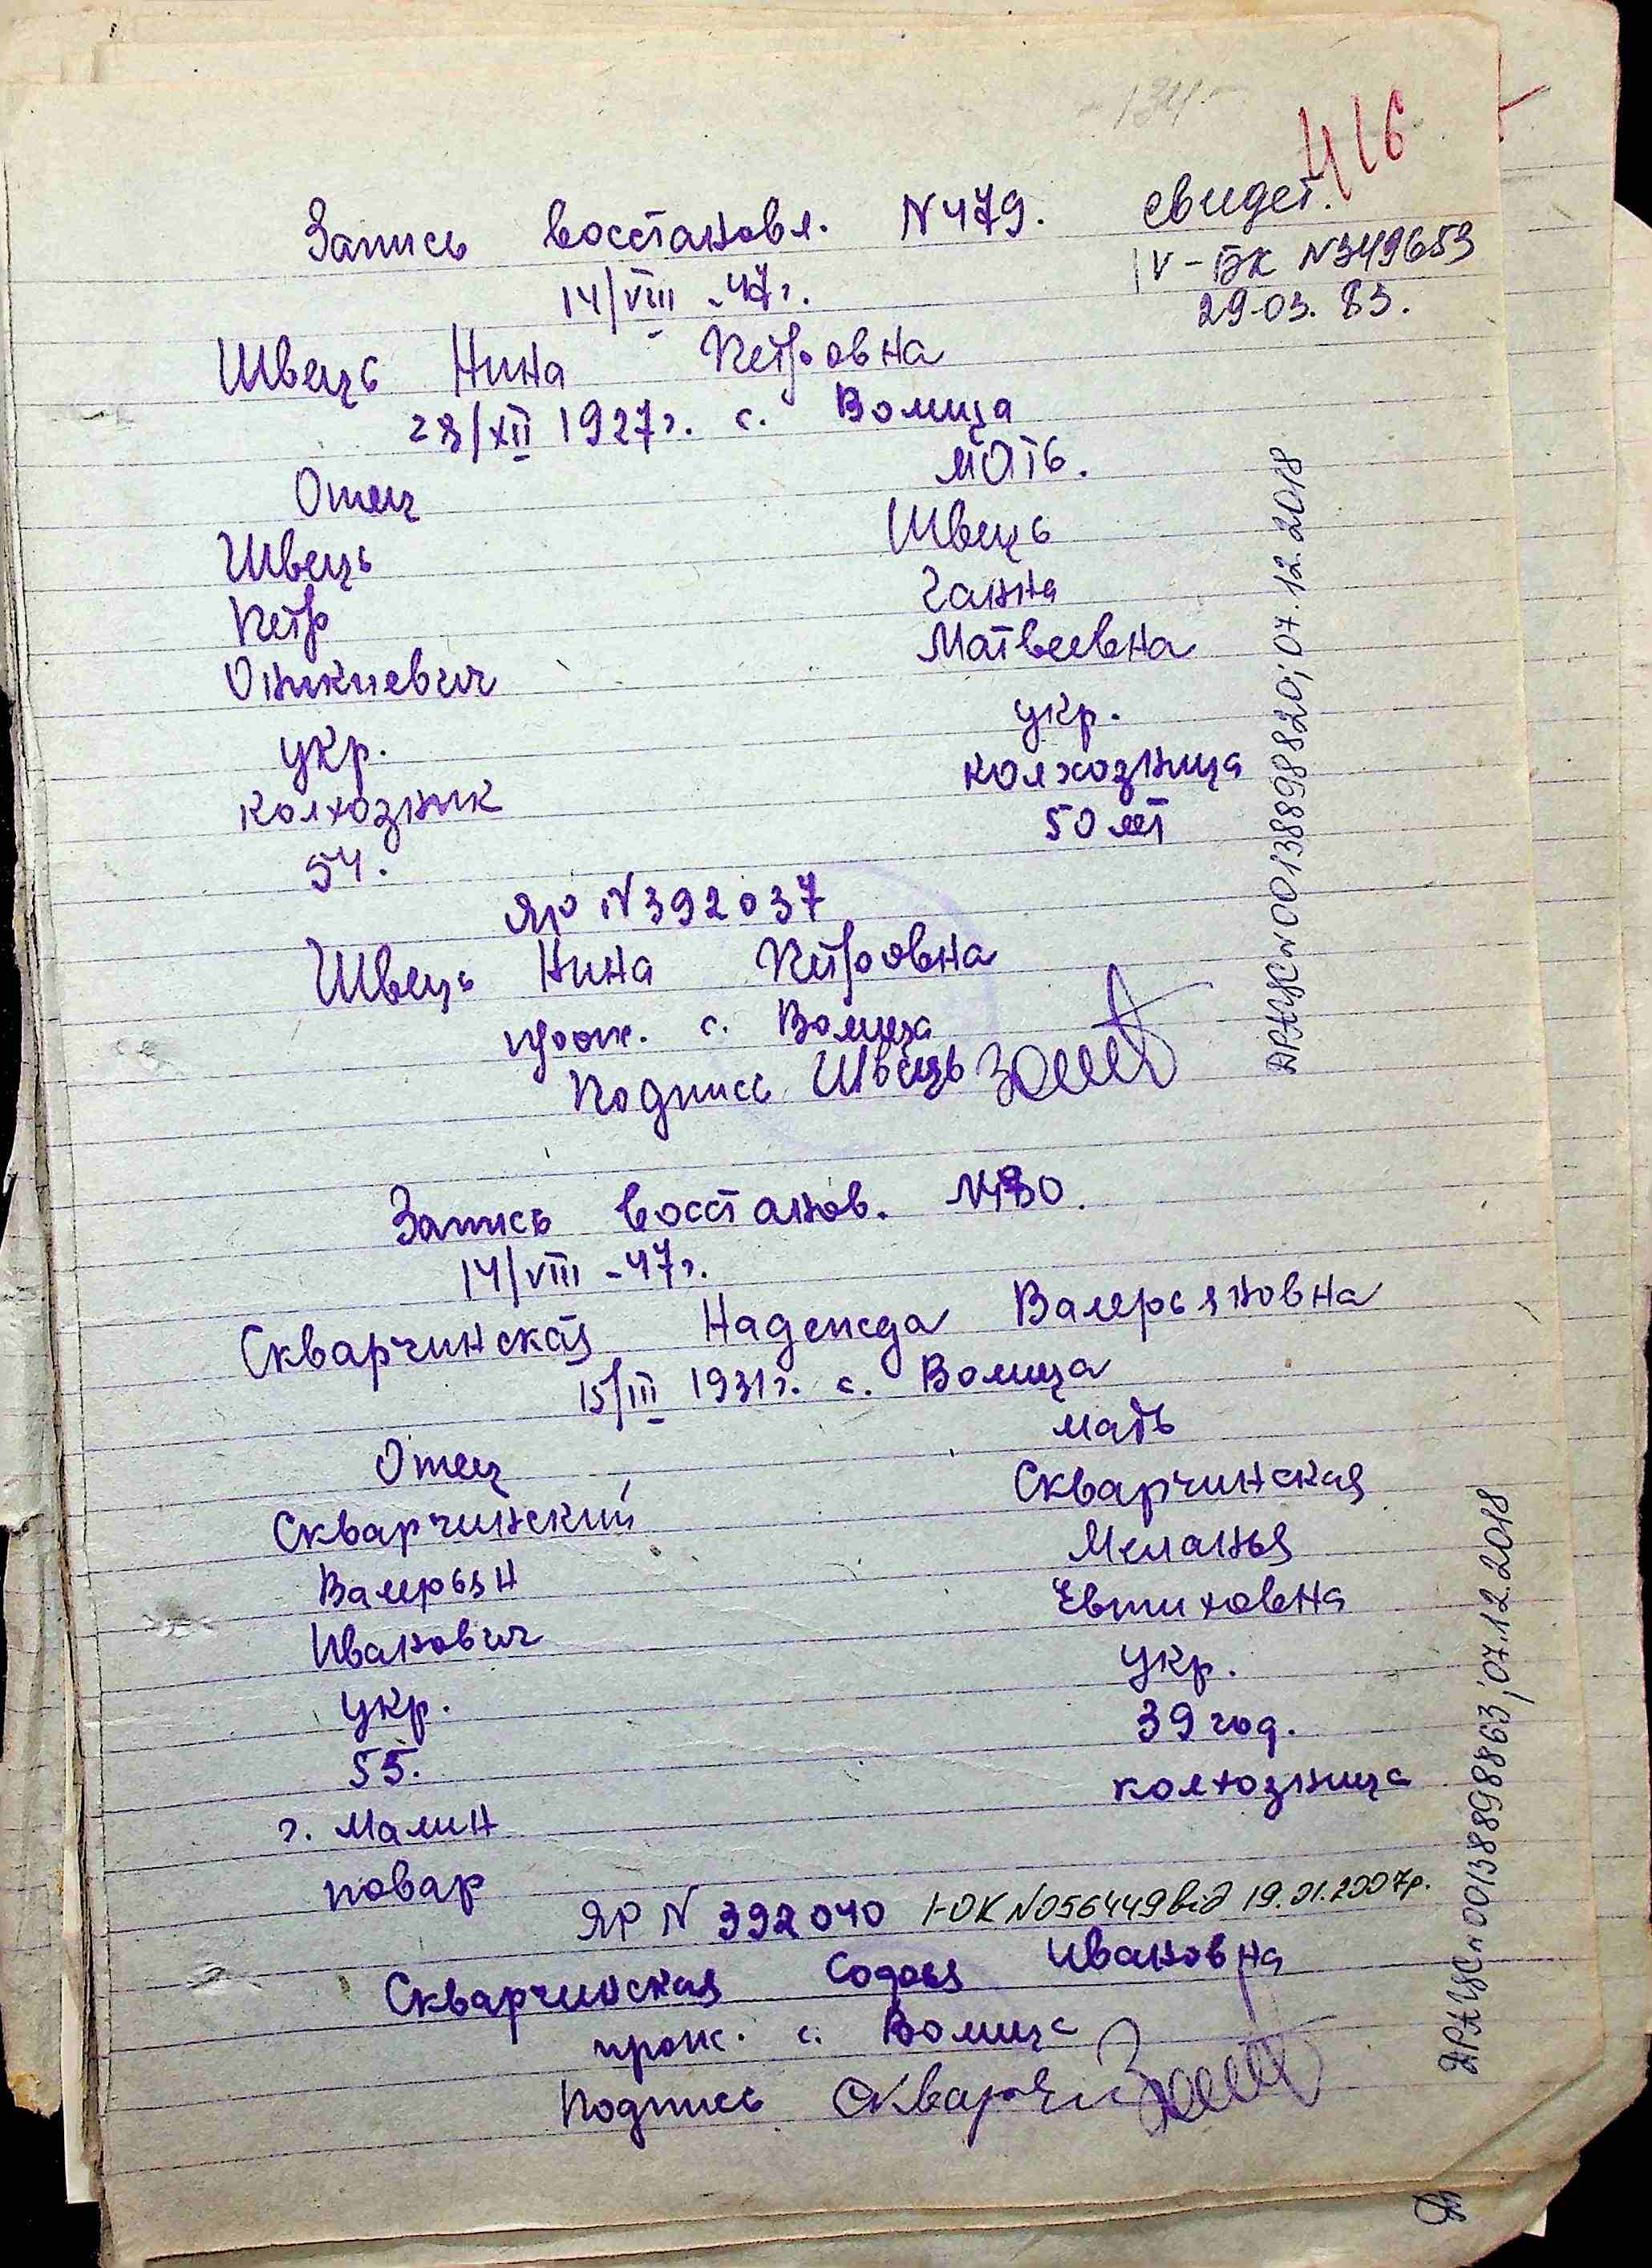 -134-
416
Запись восстановл. N479. свидет.
14/VIII -47г. IV-БК N349653
29.03.83.
Швець Нина Петровна
28/XII 1927г. с. Волица
Отец мать.
Швець Швець
Петр Ганна
Матвеевна
укр. укр.
колхозник колхозница
54. 50 лет
ЯР N392037
Швець Нина Петровна
прож. с. Волица
Подпись Швець
ДРАЦС N 00138898820; 07.12.2018
Запись восстанов. N480.
14/VIII -47г.
Скварчинская Надежда Валерьяновна
15/III 1931г. с. Волица
Отец мать
Скварчинский Скварчинская
Валерьян Меланья
Иванович Евтиховна
укр. укр.
55. 39 год.
г. Малин колхозница
повар
ЯР N 392040 І-ОК N056449 від 19.01.2007р.
Скварчинская Софья Ивановна
прож. с. Волица
Подпись
ДРАЦС N 00138898863; 07.12.2018